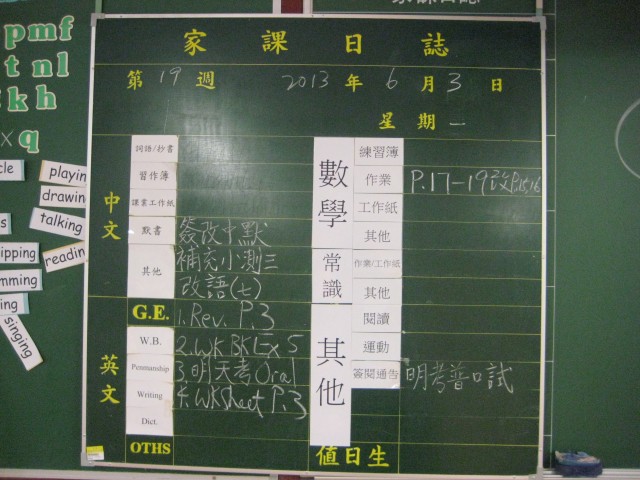 家課日誌
家課日誌
第19週 2013年6月3日
星期一
中文
詞語/抄書
習作簿
讀業工作紙
默書 簽改中默
其他 補充小測三
改語(七)
英文
G.E. 1.Rev. P.3
W.B. 2.WK BK Ex 5
Penmanship 3.明天考Oral
Writing 4.WKSheet P.3
Dict.
OTHS
數學
練習簿
作業 P.17-19改P.15,16
工作紙
其他
常識
作業/工作紙
其他
其他
閱讀
運動
簽閱通告 明考普口試
值日生
pmf
t n l
k h
x q
playin
drawin
talking
readin
ipping
mming
ing
singing